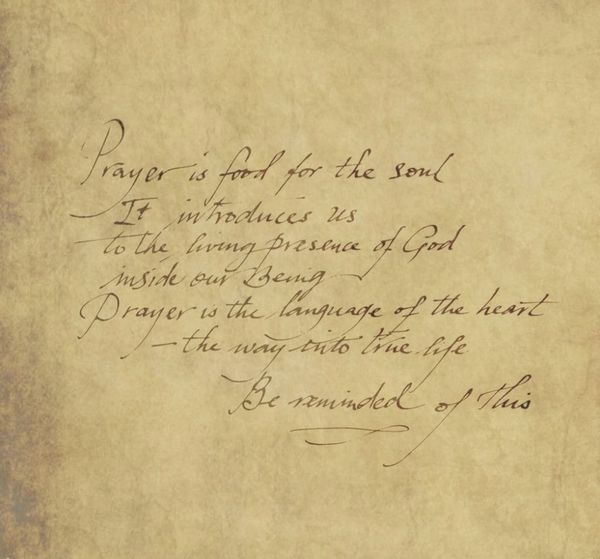 Prayer is food for the soul
It introduces us
to the living presence of God
inside our Being
Prayer is the language of the heart
– the way into true life
Be reminded of This